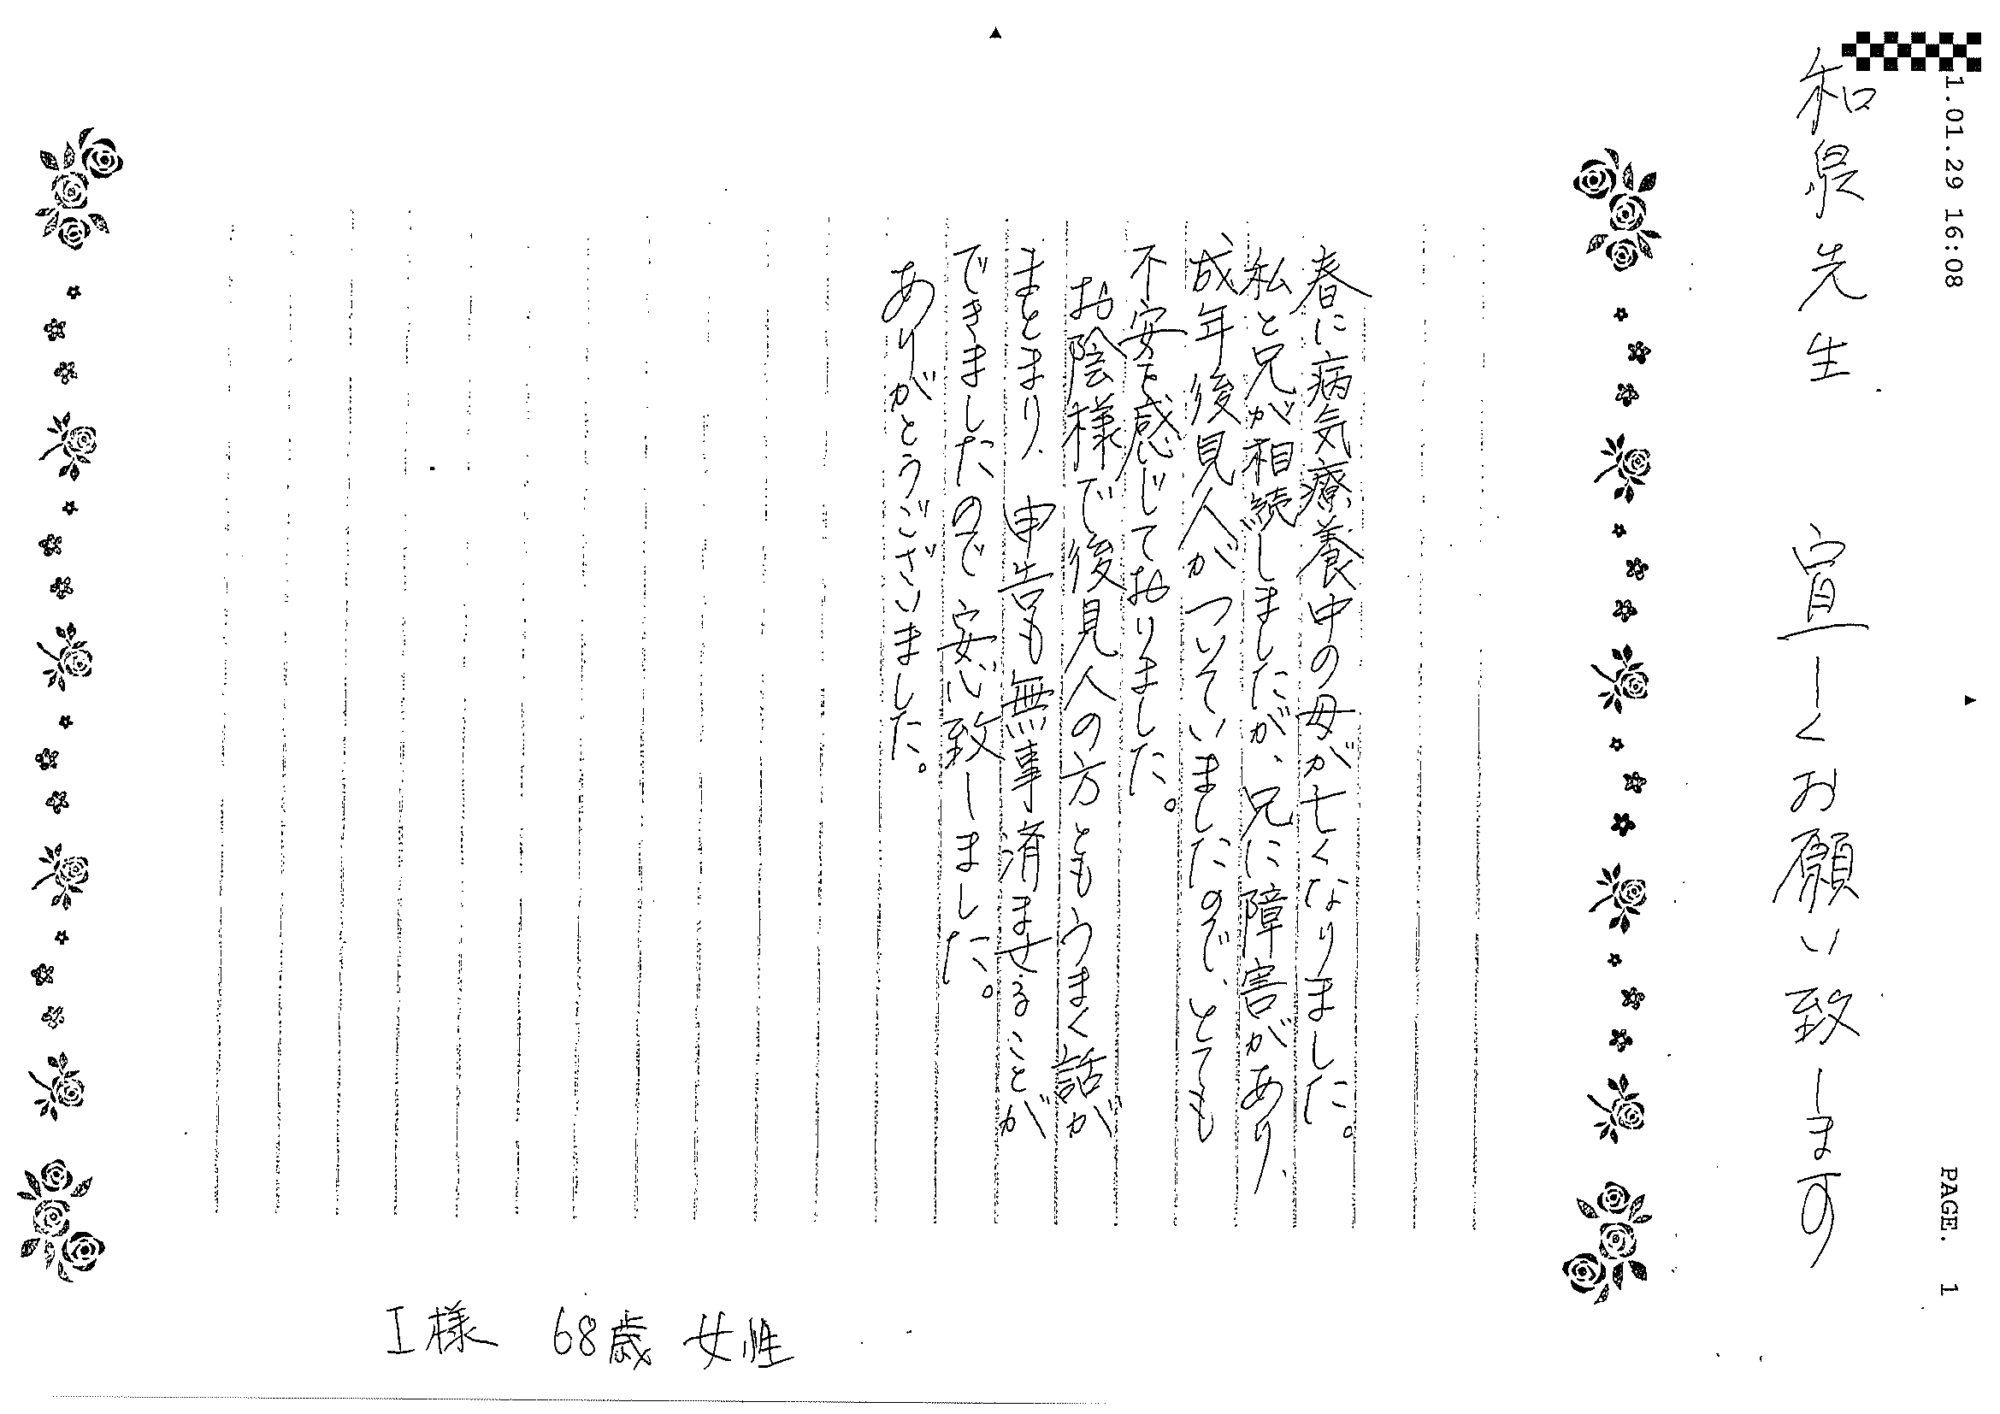 1.01.29 16:08
PAGE. 1
和泉先生 宜しくお願い致します
春に病気療養中の母が亡くなりました。
私と兄が相続しましたが、兄に障害があり、
成年後見人がついていましたので、とても
不安を感じておりました。
お陰様で後見人の方ともうまく話が
まとまり、申告も無事済ませることが
できましたので安心致しました。
ありがとうございました。
I様 68歳 女性